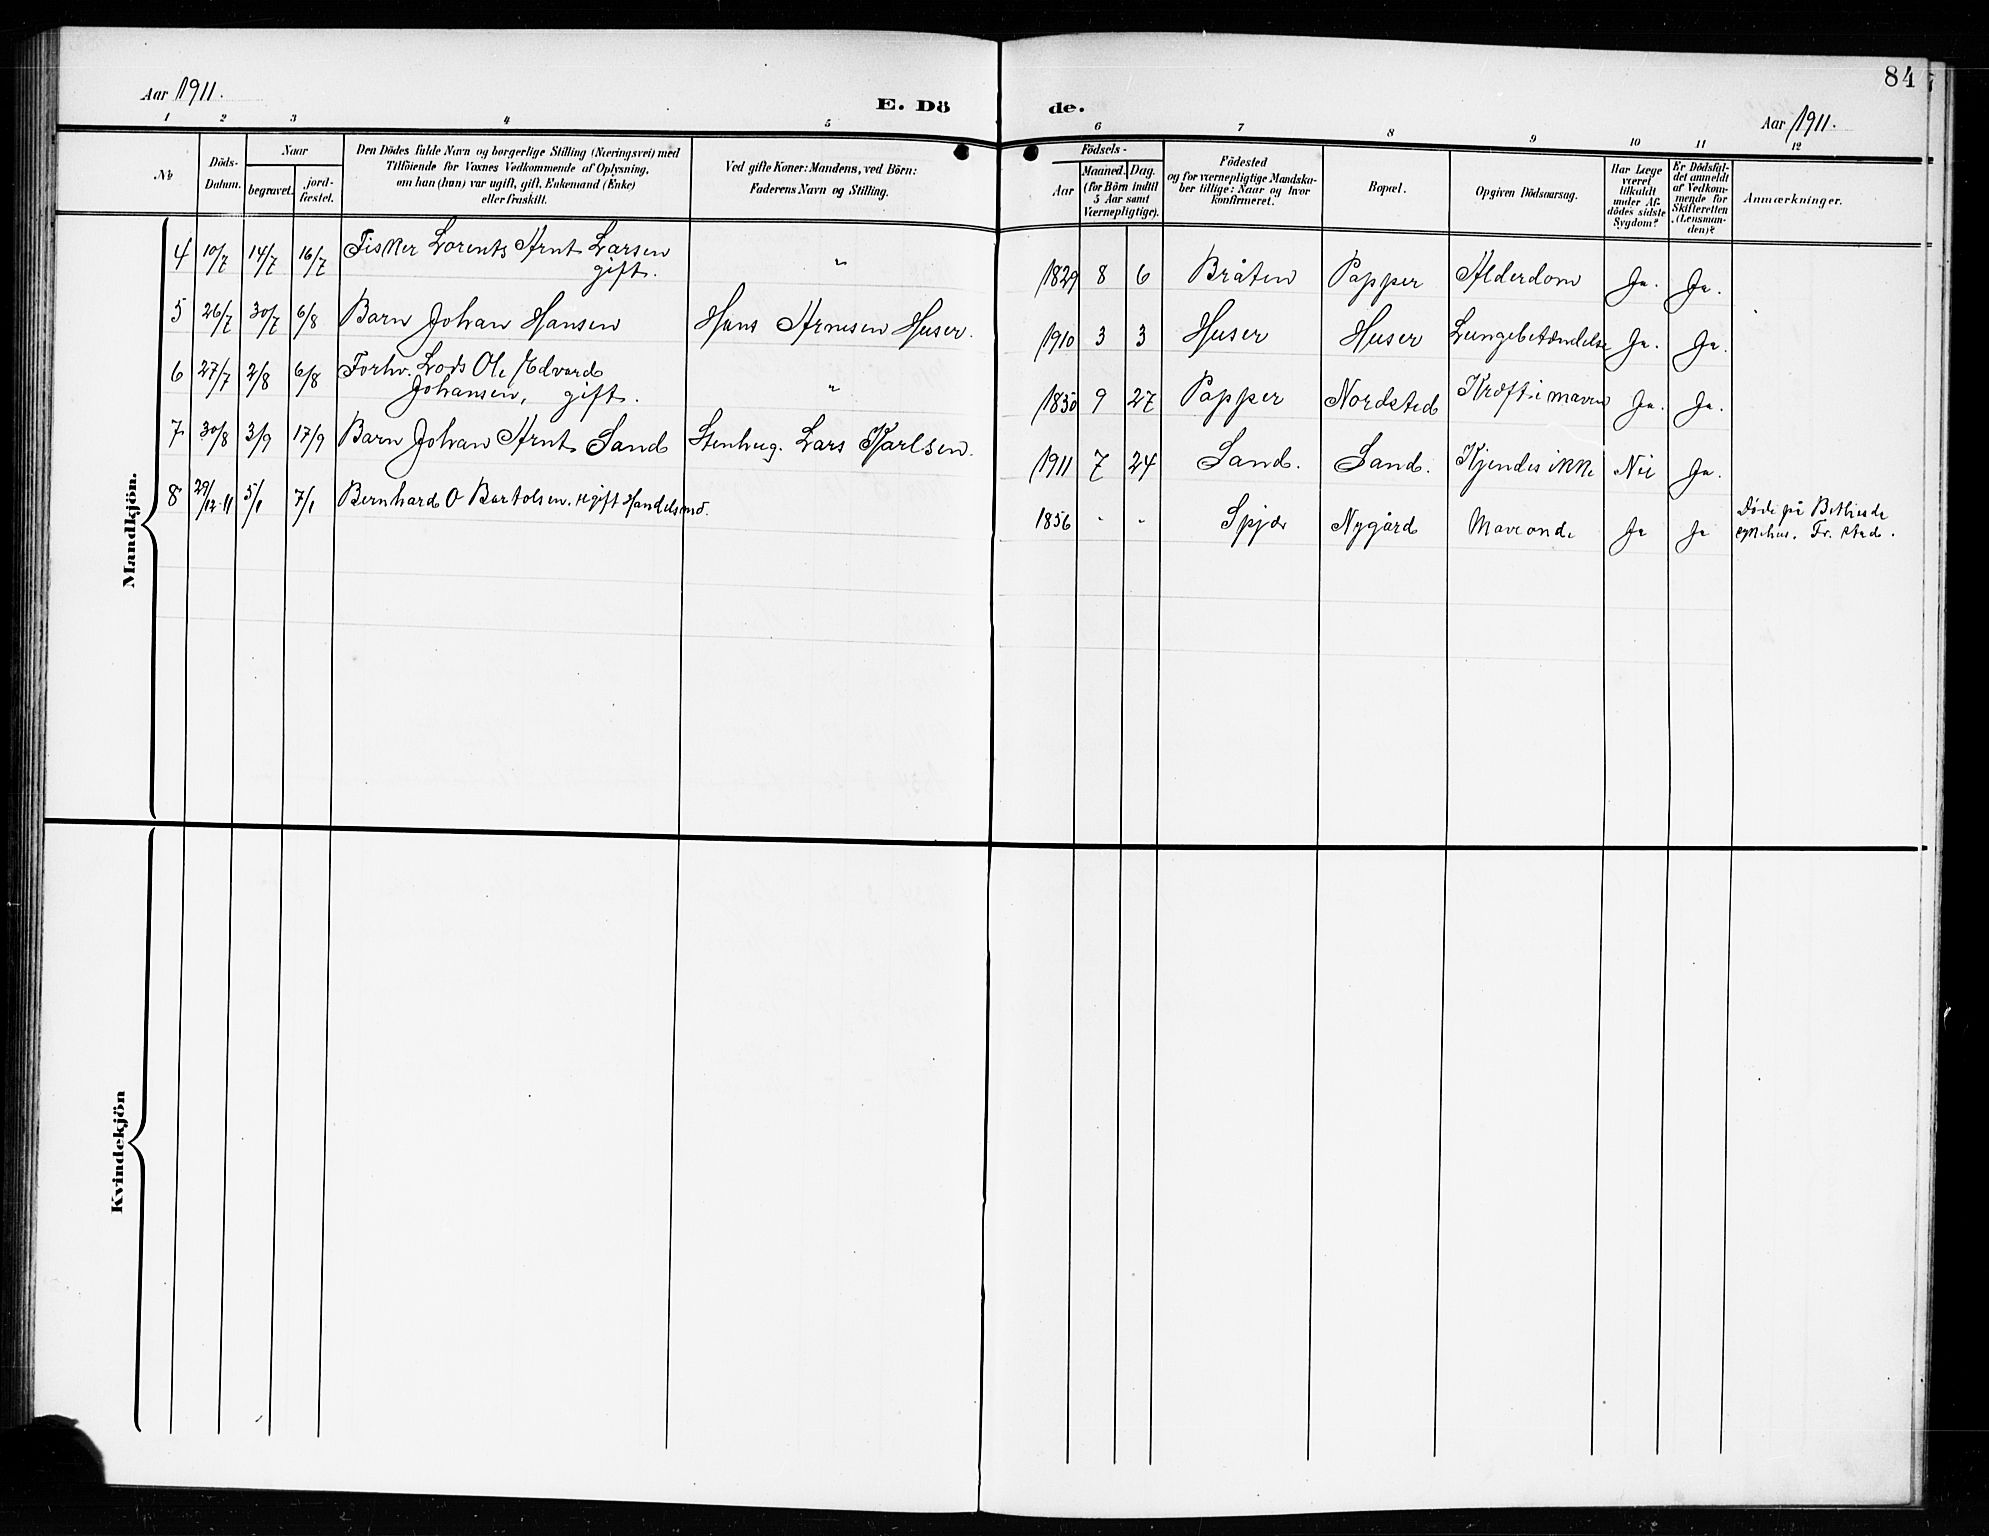 84
Aar 1911.
E. Dö
de.
Aar 1911.
1 2 3 4 5 6 7 8 9 10 11 12
No
Döds-
Datum.
Naar
begravet.
jord-
fæstet.
Den Dödes fulde Navn og borgerlige Stilling (Næringsvei) med
Tilföiende for Voxnes Vedkommende af Oplysning,
om han (hun) var ugift, gift, Enkemand (Enke)
eller fraskilt.
Ved gifte Koner: Mandens, ved Börn:
Faderens Navn og Stilling.
Födsels-
Aar
Maaned. Dag.
(for Börn indtil
5 Aar samt
Værnepligtige).
Födested
og for værnepligtige Mandska-
ber tillige: Naar og hvor
konfirmeret.
Bopæl.
Opgiven Dödsaarsag.
Har Læge
været
tilkaldt
under Af-
dödes sidste
Sygdom?
Er Dödsfal-
det anmeldt
af Vedkom-
mende for
Skifteretten
(Lensman-
den)?
Anmærkninger.
Mandkjön.
4 10/7 14/7 16/7 Fisker Lorents Arnt Larsen
gift. " 1829 8 6 Bråten Papper Alderdom Ja. Ja.
5 26/7 30/7 6/8 Barn Johan Hansen Hans Arnesen Huser. 1910 3 3 Huser Huser Lungebetændelse Ja. Ja.
6 27/7 2/8 6/8 Forhv. Lods Ole Edvard
Johansen, gift. " 1850 9 27 Papper Nordsted Kræft i maven Ja. Ja.
7 30/8 3/9 17/9 Barn Johan Arnt Sand Stenhug. Lars Karlsen. 1911 7 24 Sand. Sand. Kjendes ikke Nei Ja.
8 29/12-11 5/1 7/1 Bernhard O Bartolsen. ugift Handelsmd. 1856 " " Spjær Nygård Maveonde Ja Ja Døde på Bethesda
sykehus. Fr. stad.
Kvindekjön